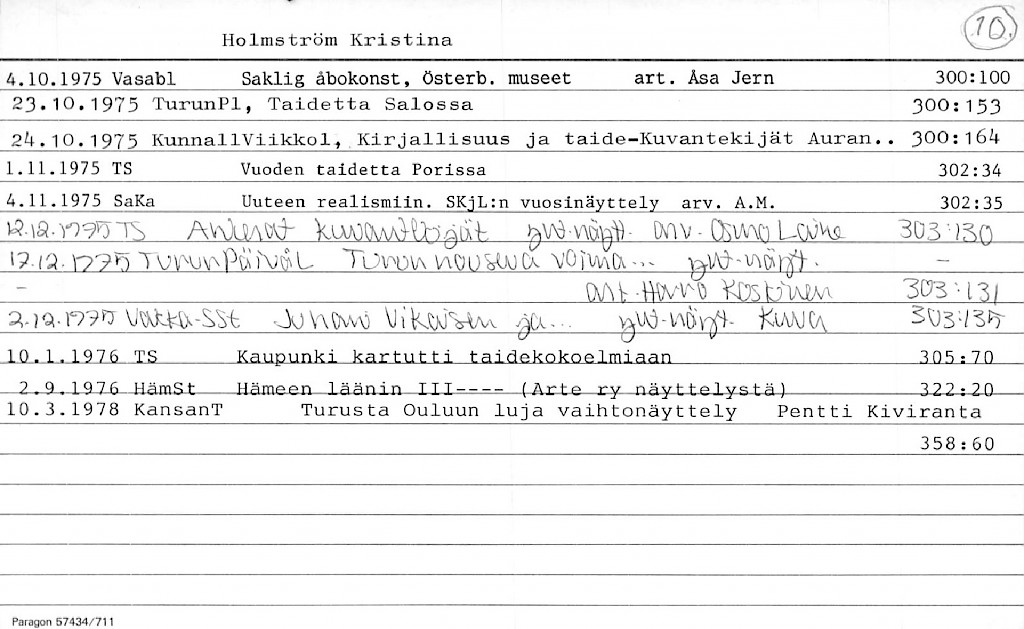 10.
Holmström Kristina
4.10.1975 Vasabl Saklig åbokonst, Österb. museet art. Åsa Jern 300:100
23.10.1975 TurunPl, Taidetta Salossa 300:153
24.10.1975 KunnallViikkol, Kirjallisuus ja taide-Kuvantekijät Auran.. 300:164
1.11.1975 TS Vuoden taidetta Porissa 302:34
4.11.1975 SaKa Uuteen realismiin. SKjL:n vuosinäyttely arv. A.M. 302:35
12.12.1975 TS kuvantekijät yht.näytt. arv. Osmo Laine 303:130
17.12.1975 TurunPäiväl Turun nouseva voima... yht-näytt. -
- art. Harro Koskinen 303:131
2.12.1975 Vakka-SSt Juhani Vikaisen ja... yht-näytt. Kuva 303:135
10.1.1976 TS Kaupunki kartutti taidekokoelmiaan 305:70
2.9.1976 HämSt Hämeen läänin III---- (Arte ry näyttelystä) 322:20
10.3.1978 KansanT Turusta Ouluun luja vaihtonäyttely Pentti Kiviranta
358:60
Paragon 57434/711